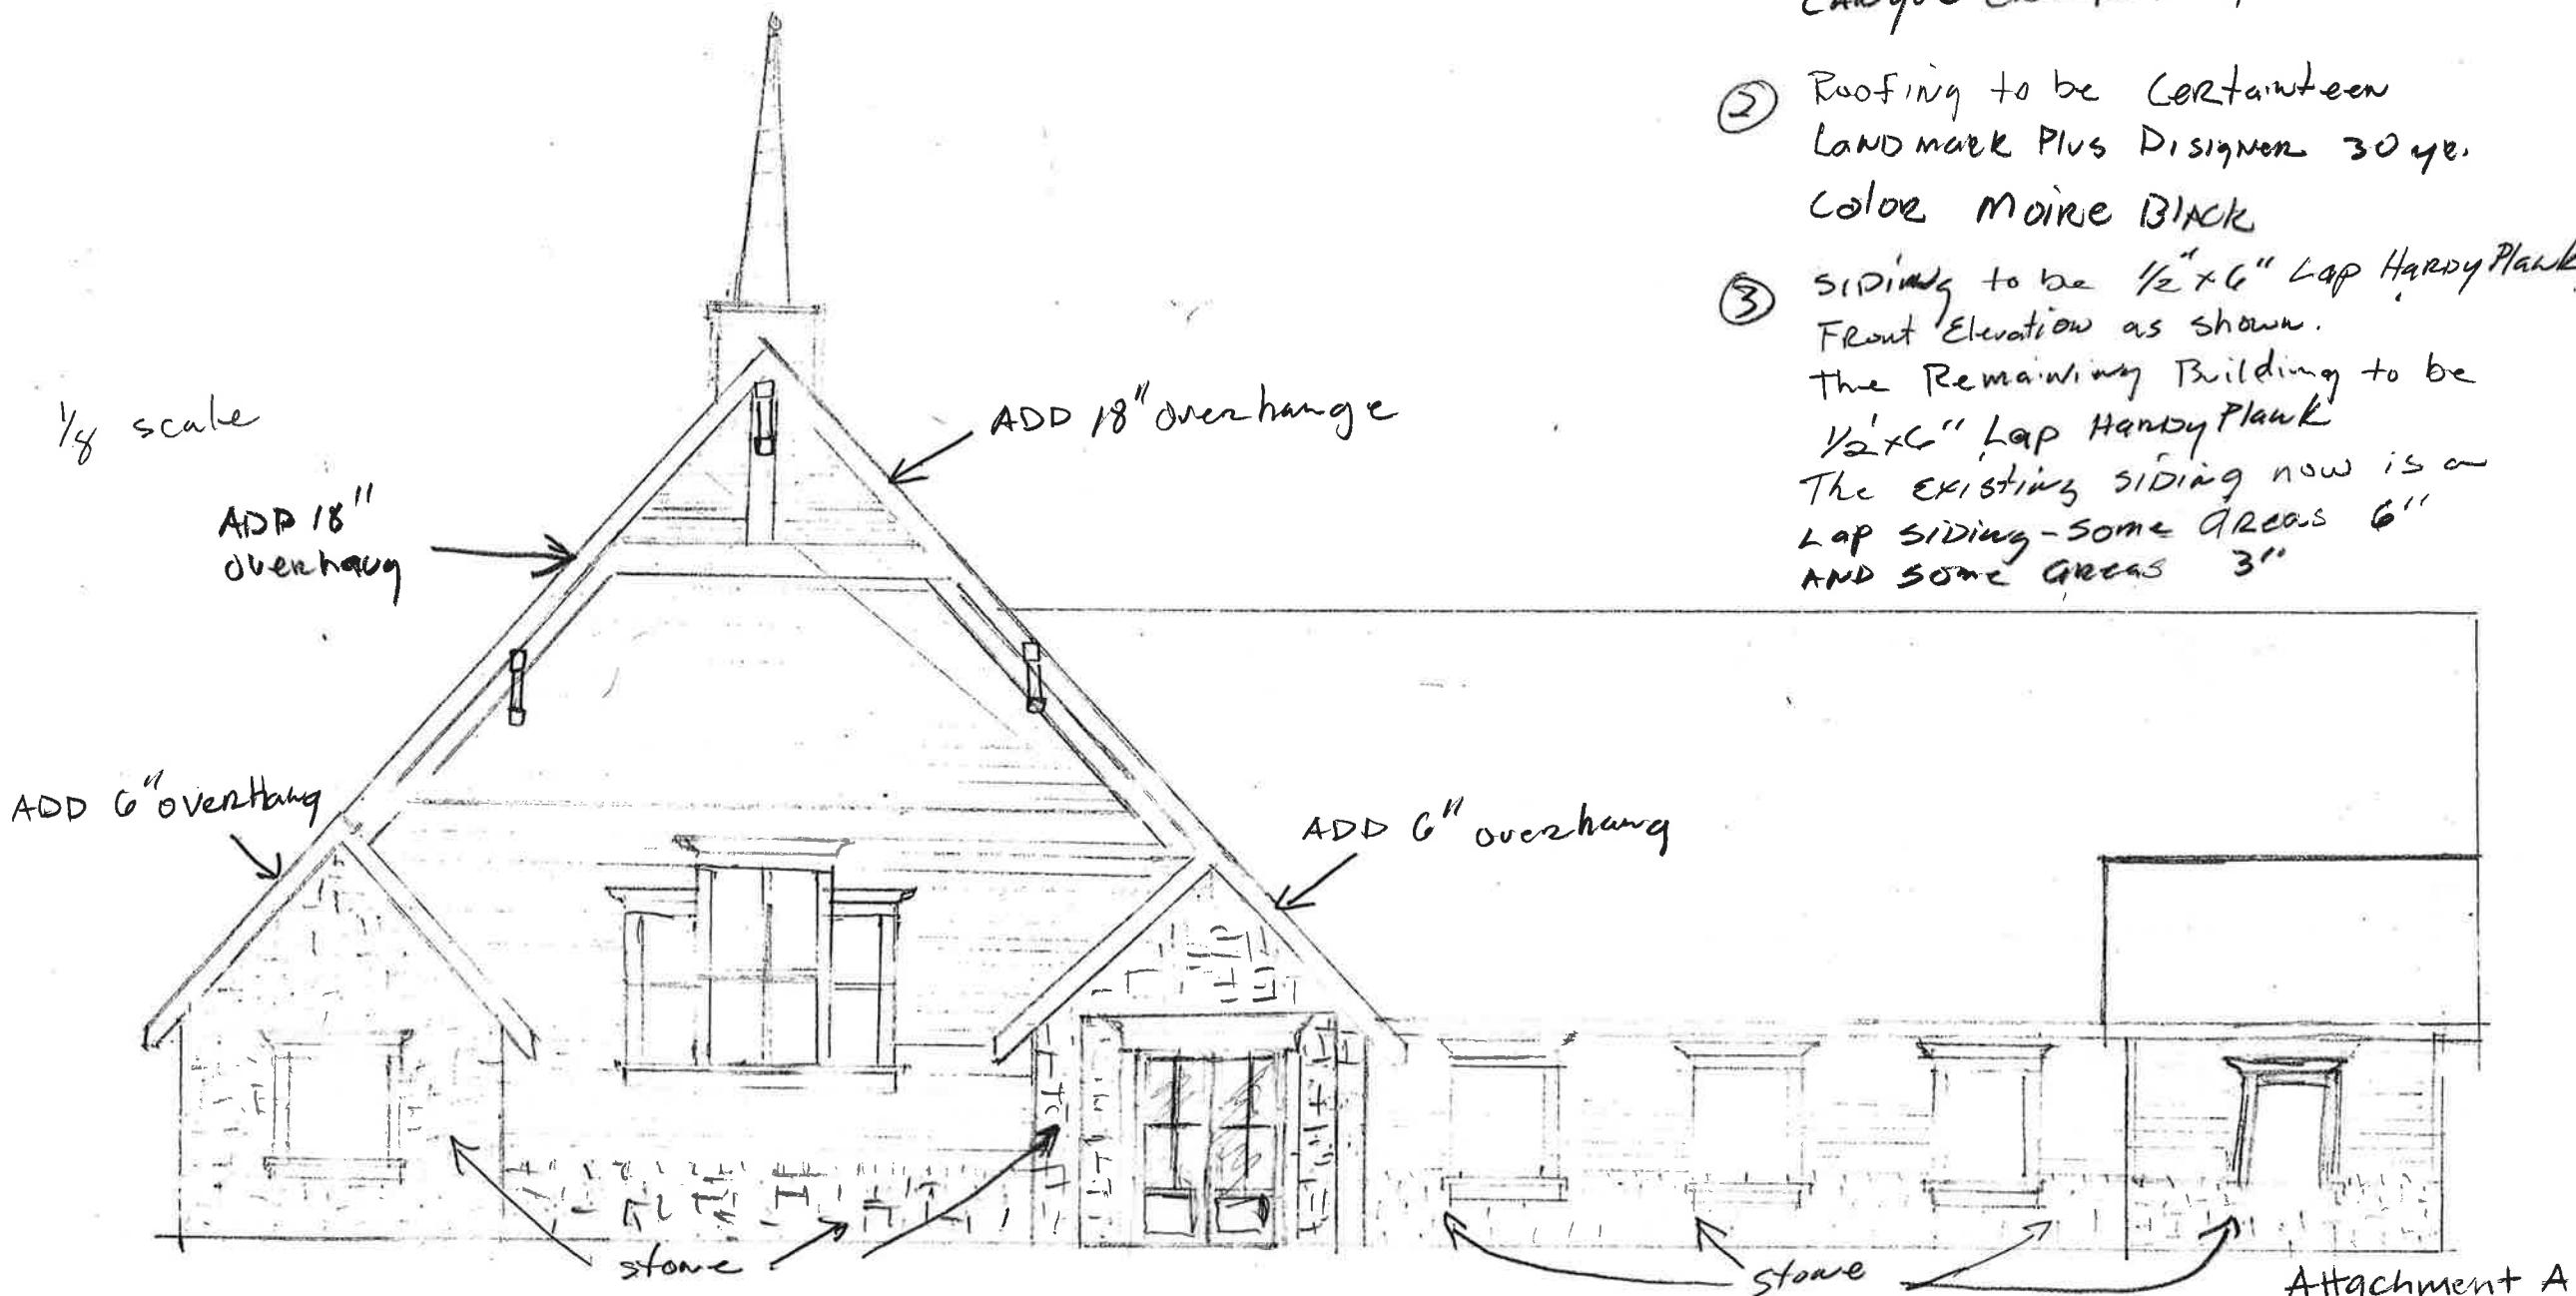 ② Roofing to be Certainteen
Landmark Plus Disigner 30 yr.
Color Moire Black
③ Siding to be 1/2" x 6" Lap Hardy Plank
Front Elevation as shown.
The Remaining Building to be
1/2' x 6" Lap Hardy Plank
The existing siding now is a
Lap siding - some areas 6"
AND some areas 3"
1/8 scale
ADD 18" overhange
ADD 18"
overhang
ADD 6" overHang
ADD 6" overhang
stone
stone
Attachment A